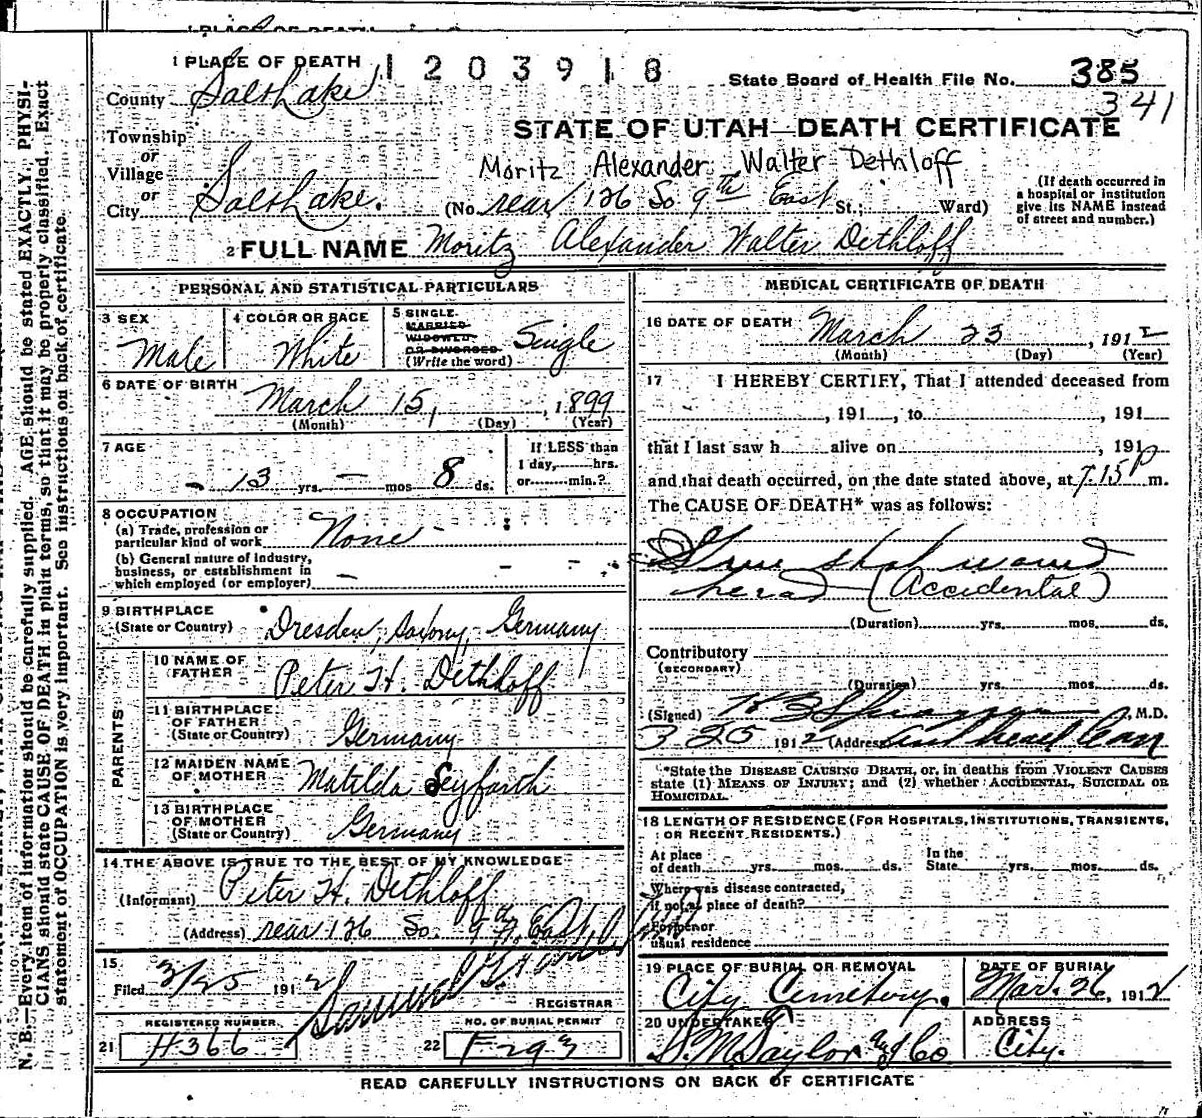 1 PLACE OF DEATH 1203918
State Board of Health File No. 385
341
County Salt Lake
STATE OF UTAH—DEATH CERTIFICATE
Township
or
Village
or
City Salt Lake.
Moritz Alexander Walter Dethloff
(No. rear 126 So 9th East St.; Ward)
(If death occurred in
a hospital or institution
give its NAME instead
of street and number.)
2 FULL NAME Moritz Alexander Walter Dethloff
PERSONAL AND STATISTICAL PARTICULARS
3 SEX
Male
4 COLOR OR RACE
White
5 SINGLE.
MARRIED.
WIDOWED.
OR DIVORCED.
(Write the word)
Single
6 DATE OF BIRTH
March 15, 1899
(Month) (Day) (Year)
7 AGE
13 yrs. — mos 8 ds.
If LESS than
1 day, hrs.
or min.?
8 OCCUPATION
(a) Trade, profession or
particular kind of work None
(b) General nature of industry,
business, or establishment in
which employed (or employer) —
9 BIRTHPLACE
(State or Country) Dresden, Saxony, Germany
PARENTS
10 NAME OF
FATHER Peter H. Dethloff
11 BIRTHPLACE
OF FATHER
(State or Country) Germany
12 MAIDEN NAME
OF MOTHER Matilda Seyfarth
13 BIRTHPLACE
OF MOTHER
(State or Country) Germany
14 THE ABOVE IS TRUE TO THE BEST OF MY KNOWLEDGE
(Informant) Peter H. Dethloff
(Address) rear 126 So. 9th East
15
Filed 3/25 1912
REGISTRAR
REGISTERED NUMBER
21 H366
NO. OF BURIAL PERMIT
22 F293
MEDICAL CERTIFICATE OF DEATH
16 DATE OF DEATH March 23, 1912
(Month) (Day) (Year)
17 I HEREBY CERTIFY, That I attended deceased from
, 191 , to , 191
that I last saw h alive on , 191
and that death occurred, on the date stated above, at 7.15 P m.
The CAUSE OF DEATH* was as follows:
Gun shot wound
head (Accidental)
(Duration) yrs. mos. ds.
Contributory
(SECONDARY)
(Duration) yrs. mos. ds.
(Signed) , M.D.
3 25 1912 (Address)
*State the DISEASE CAUSING DEATH, or, in deaths from VIOLENT CAUSES
state (1) MEANS OF INJURY; and (2) whether ACCIDENTAL, SUICIDAL OR
HOMICIDAL.
18 LENGTH OF RESIDENCE (FOR HOSPITALS, INSTITUTIONS, TRANSIENTS,
OR RECENT RESIDENTS.)
At place
of death yrs. mos. ds.
In the
State yrs. mos. ds.
Where was disease contracted,
if not at place of death?
Former or
usual residence
19 PLACE OF BURIAL OR REMOVAL
City Cemetery.
DATE OF BURIAL
Mar. 26, 1912
20 UNDERTAKER
S. M. Taylor and Co
ADDRESS
City.
READ CAREFULLY INSTRUCTIONS ON BACK OF CERTIFICATE
N. B.—Every item of information should be carefully supplied. AGE should be stated EXACTLY. PHYSI-
CIANS should state CAUSE OF DEATH in plain terms, so that it may be properly classified. Exact
statement of OCCUPATION is very important. See instructions on back of certificate.